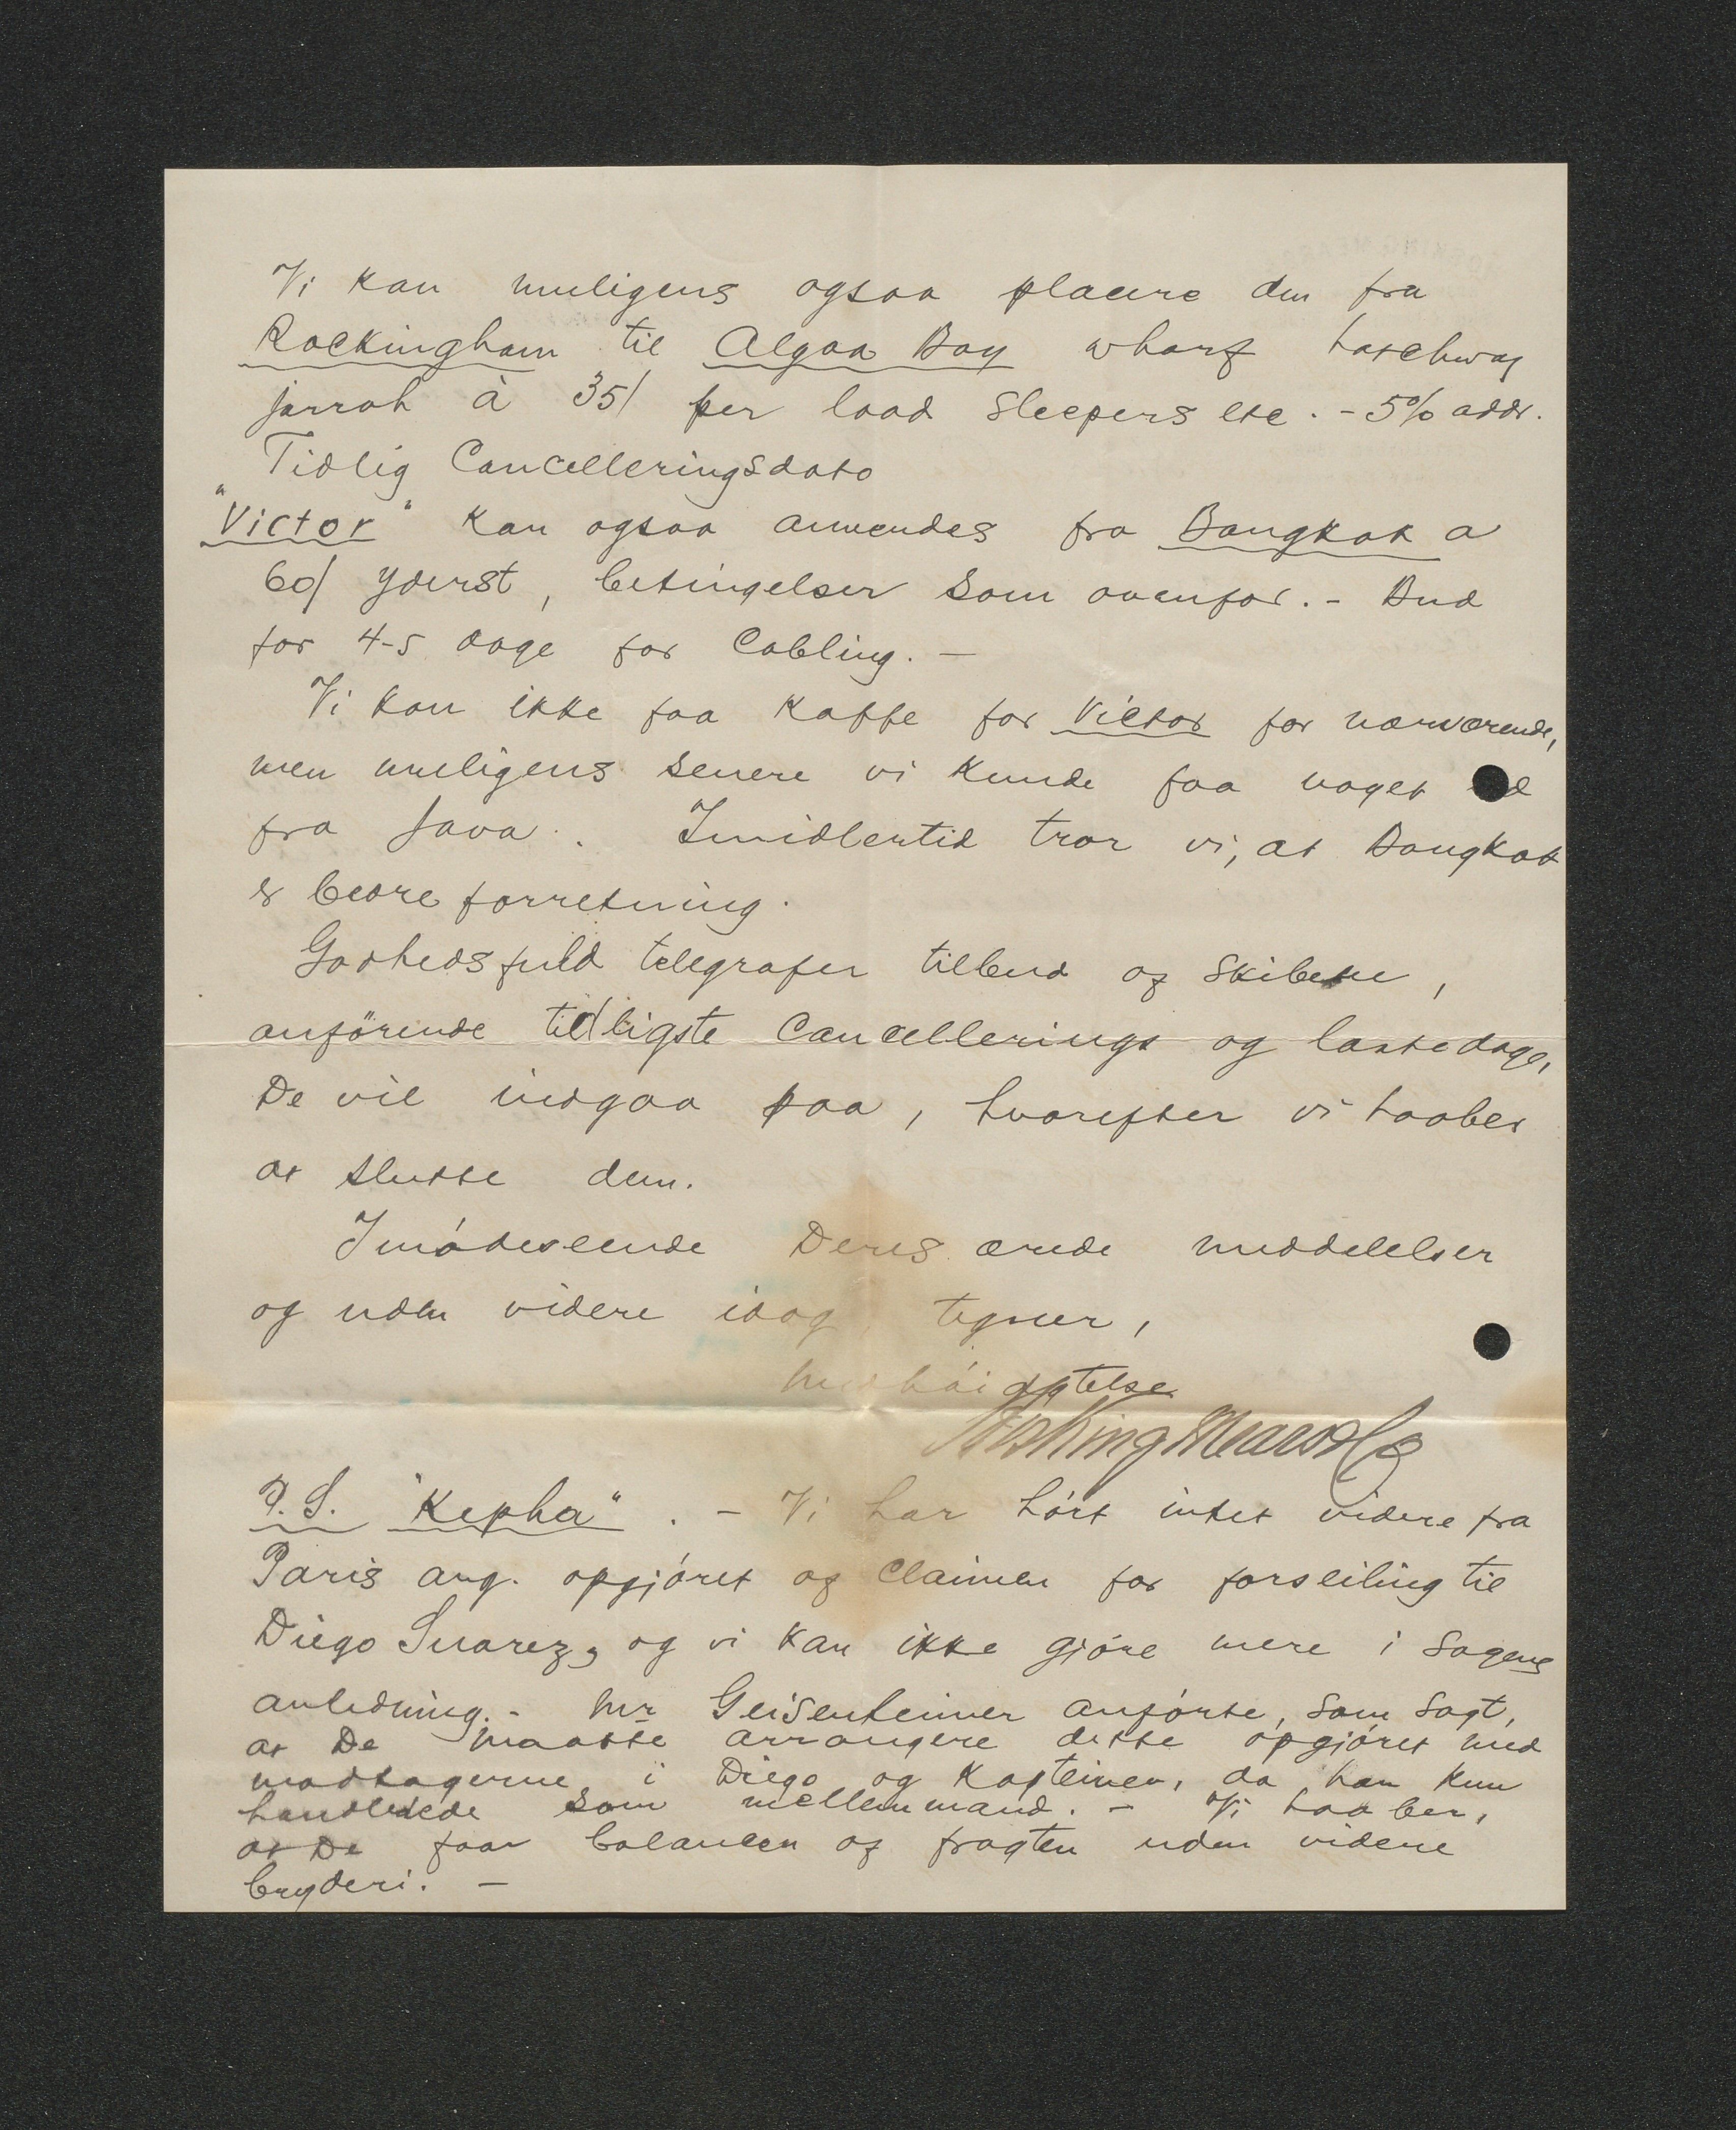 Vi kan muligens ogsaa placere den fra
Rockingham til Algoa Bay wharf hatchway
jarrah à 35/ per load sleepers etc. - 5% addr.
Tidlig Cancelleringsdato
"Victor" kan ogsaa anvendes fra Bangkok a
60/ yderst, betingelser som ovenfor. - Bud
for 4-5 dage for Cabling. -
Vi kan ikke faa Kaffe for Victor for nærværende,
men muligens senere vi kunde faa noget
fra Java. Imidlertid tror vi, at Bangkok
er bedre forretning.
Godhedsfuld telegrafer tilbud af skibene,
anförende tidligste Cancellerings og lastedage,
De vil indgaa paa, hvorefter vi haaber
at slutte dem.
Imödeseende Deres ærede meddelelser
og uden videre idag, tegner,
Med höiagtelse
Hosking Mears & Co
P.S. "Kepha". - Vi har hört intet videre fra
Paris ang. opgjöret af Claimen for forseiling til
Diego Suarez, og vi kan ikke gjöre mere i sagens
anledning. - Mr Geisenheimer anförte, som sagt,
at De maatte arrangere dette opgjöret med
modtagerne i Diego og Kapteinen, da han kun
handlede som mellemmand. - Vi haaber,
at De faar balancen af fragten uden videre
bryderi. -